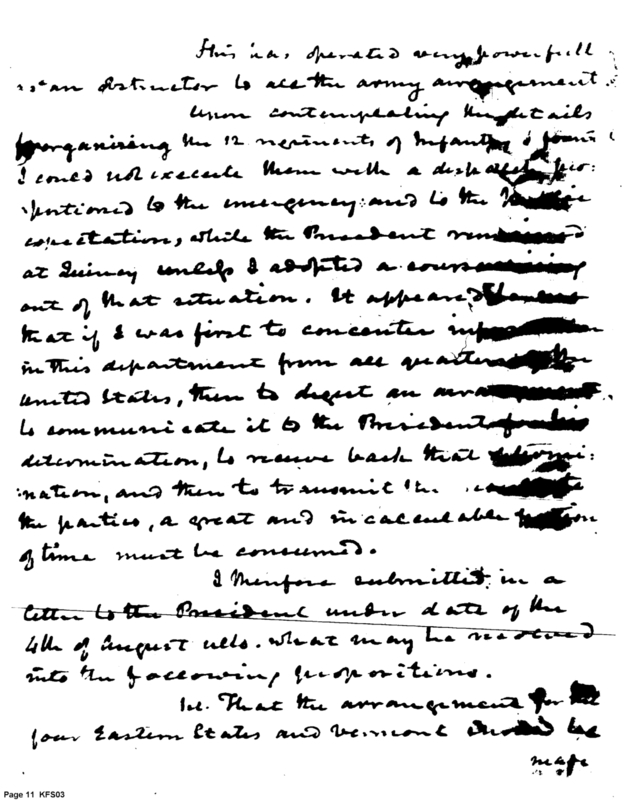 This has operated very powerfull
as an obstructor to all the army arrangement
Upon contemplating the details
organizing the 12 regiments of Infantry & found
I could not execute them with a dispatch pro:
:portioned to the emergency: and to the
expectation, while the President remained
at Quincy unless I adopted a course
out of that situation. It appeared
that if I was first to concenter
in this department from all quarters
United States, then to digest an
to communicate it to the President for his
determination, to receive back that determi:
:nation, and then to transmit the
the parties, a great and incalculable portion
of time must be consumed.
I therefore submitted in a
letter to the President under date of the
4th of August ulto. what may be resolved
into the following propositions.
1st. That the arrangement for the
four Eastern States and Vermont should be
made
Page 11 KFS03